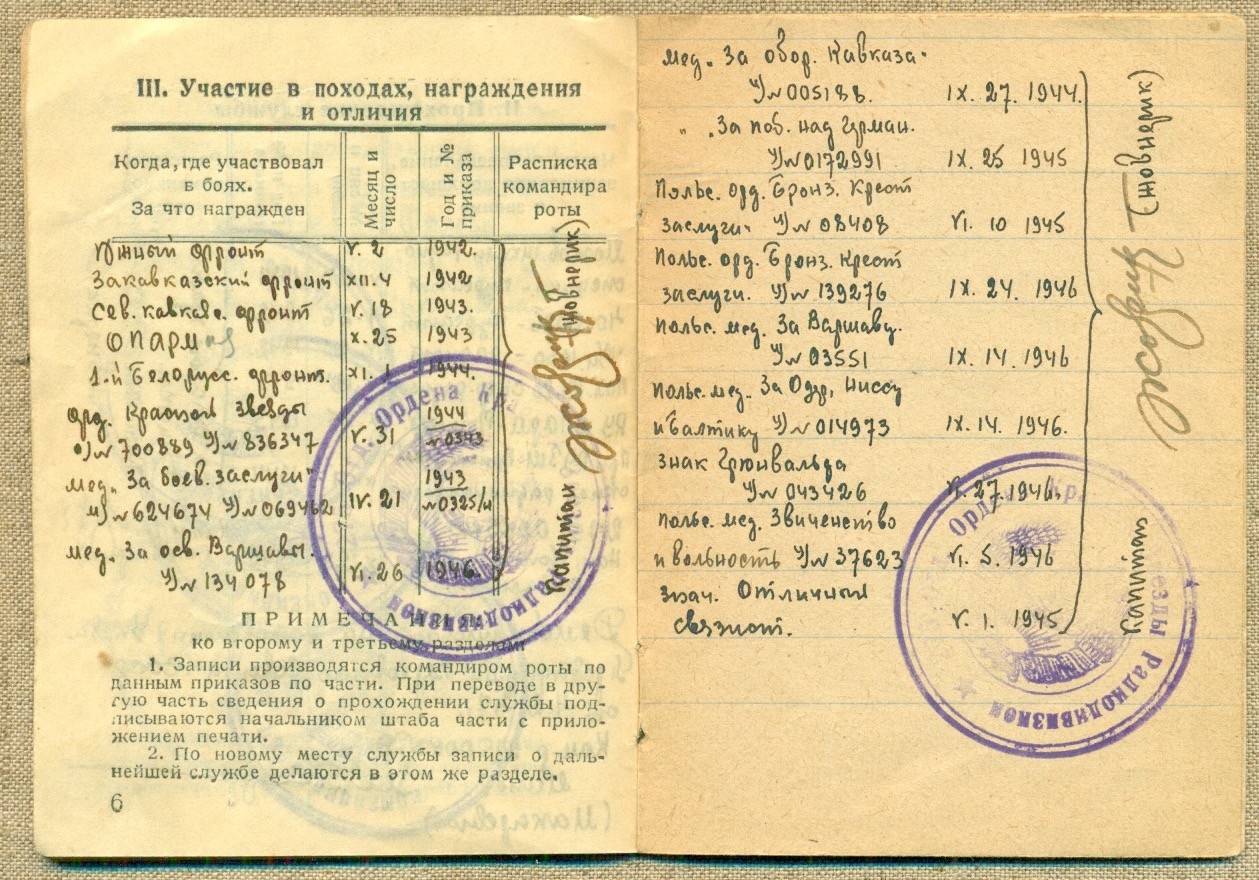 III. Участие в походах, награждения
и отличия
Когда, где участвовал
в боях.
За что награжден
Месяц и
число
Год и №
приказа
Расписка
командира
роты
Южный фронт V. 2 1942.
Закавказский фронт XII. 4 1942
Сев. кавказ. фронт V. 18 1943.
ОПАРМ X. 25 1943
1-й Белорусс. фронт. XI. 1 1944.
орд. Красной Звезды 1944
№700889 У№836347 V. 31 №0343
мед. "За боев. заслуги" 1943
№624674 У№069462 IV. 21 №0325/н
мед. За осв. Варшавы.
У№134078 VI. 26 1946.
Капитан (Жовнерик)
Ордена Кра
Радиодивизион
ПРИМЕЧАНИЯ
ко второму и третьему разделам
1. Записи производятся командиром роты по
данным приказов по части. При переводе в дру-
гую часть сведения о прохождении службы под-
писываются начальником штаба части с прило-
жением печати.
2. По новому месту службы записи о даль-
нейшей службе делаются в этом же разделе.
6
мед. За обор. Кавказа.
У№005188. IX. 27. 1944.
" За поб. над Герман.
У№0172991 IX. 25 1945
Польс. орд. Бронз. Крест
заслуги. У№08408 VI. 10 1945
Польс. орд. Бронз. Крест
заслуги. У№139276 IX. 24. 1946
Польс. мед. За Варшаву.
У№03551 IX. 14. 1946
Польс. мед. За Одру, Ниссу
и Балтику У№014973 IX. 14. 1946.
знак Грюнвальда
У№043426 V. 27. 1946.
Польс. мед. Звиченство
и вольность У№37623 VI. 5. 1946
знач. Отличный
связист. V. 1. 1945
Капитан (Жовнерик)
Ордена Кра
езды Радиодивизион